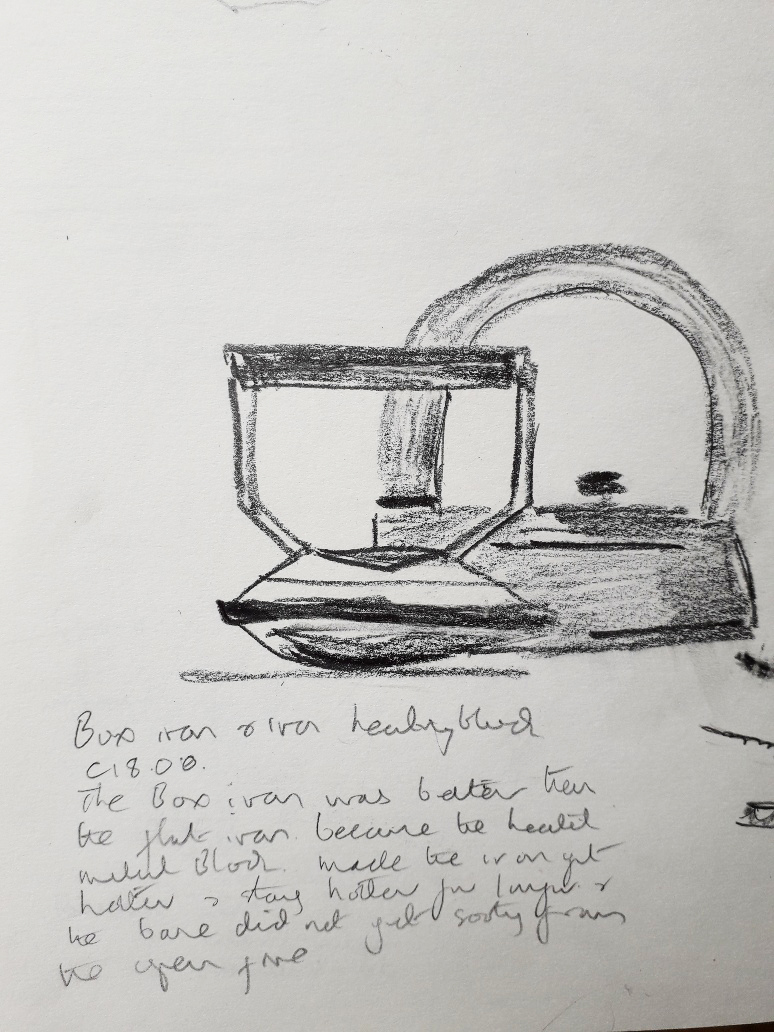 Box iron & iron heating block
C18.00.
The Box iron was better than
the flat iron. because the heated
metal Block. made the iron get
hotter & stay hotter for longer &
the base did not get sooty from
the open fire